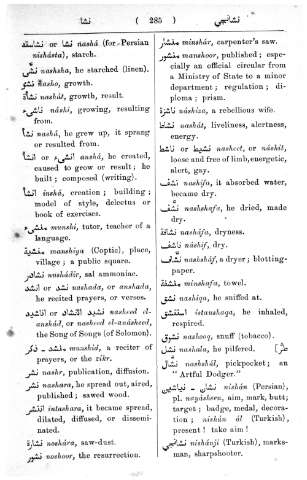 نشا ( 285 ) نشانجي
نشا or نشاسته nashá (for Persian
nishásta), starch.
نشى nashsha, he starched (linen).
نشو nasho, growth.
نشأة nashát, growth, result.
ناشىء náshi, growing, resulting
from.
نشأ nashá, he grew up, it sprang
or resulted from.
أنشأ or انشىء anshá, he created,
caused to grow or result; he
built; composed (writing).
انشا inshá, creation; building;
model of style, delectus or
book of exercises.
منشىء munshi, tutor, teacher of a
language.
منشية munshiya (Coptic), place,
village; a public square.
نشادر nashádir, sal ammoniac.
نشد or انشد nashada, or anshada,
he recited prayers, or verses.
نشيد الانشاد or الاناشيد nasheed el-
anshád, or nasheed el-anásheed,
the Song of Songs (of Solomon).
منشد - ذكر munshid, a reciter of
prayers, or the zikr.
نشر nashr, publication, diffusion.
نشر nashara, he spread out, aired,
published; sawed wood.
انتشر intashara, it became spread,
dilated, diffused, or dissemi-
nated.
نشارة noshára, saw-dust.
نشور noshoor, the resurrection.
منشار minshár, carpenter's saw.
منشور manshoor, published; espe-
cially an official circular from
a Ministry of State to a minor
department; regulation; di-
ploma; prism.
ناشزة náshiza, a rebellious wife.
نشاط nashát, liveliness, alertness,
energy.
نشيط or ناشط nasheet, or náshit,
loose and free of limb, energetic,
alert, gay.
نشف nashifa, it absorbed water,
became dry.
نشف nashshafa, he dried, made
dry.
نشافة nasháfa, dryness.
ناشف náshif, dry.
نشافة nashsháf, a dryer; blotting-
paper.
منشفة minshafa, towel.
نشق nashiqa, he sniffed at.
استنشق istanshaqa, he inhaled,
respired.
نشوق nashooq, snuff (tobacco).
نشل nashala, he pilfered.
نشال nashshál, pickpocket; an
"Artful Dodger."
نشان - نياشين nishán (Persian),
pl. nayásheen, aim, mark, butt;
target; badge, medal, decora-
tion; nishán ál (Turkish),
present! take aim!
نشانجي nishánji (Turkish), marks-
man, sharpshooter.